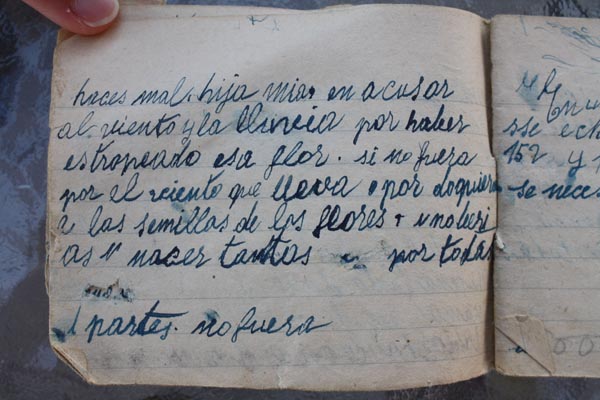 haces mal, hija mia, en acusar
al viento y la lluvia por haber
estropeado esa flor. si no fuera
por el viento que lleva por doquiera
a las semillas de los flores + veri
as nacer tantas por todas
partes. no fuera
En u
sse ech
152 y
se neces